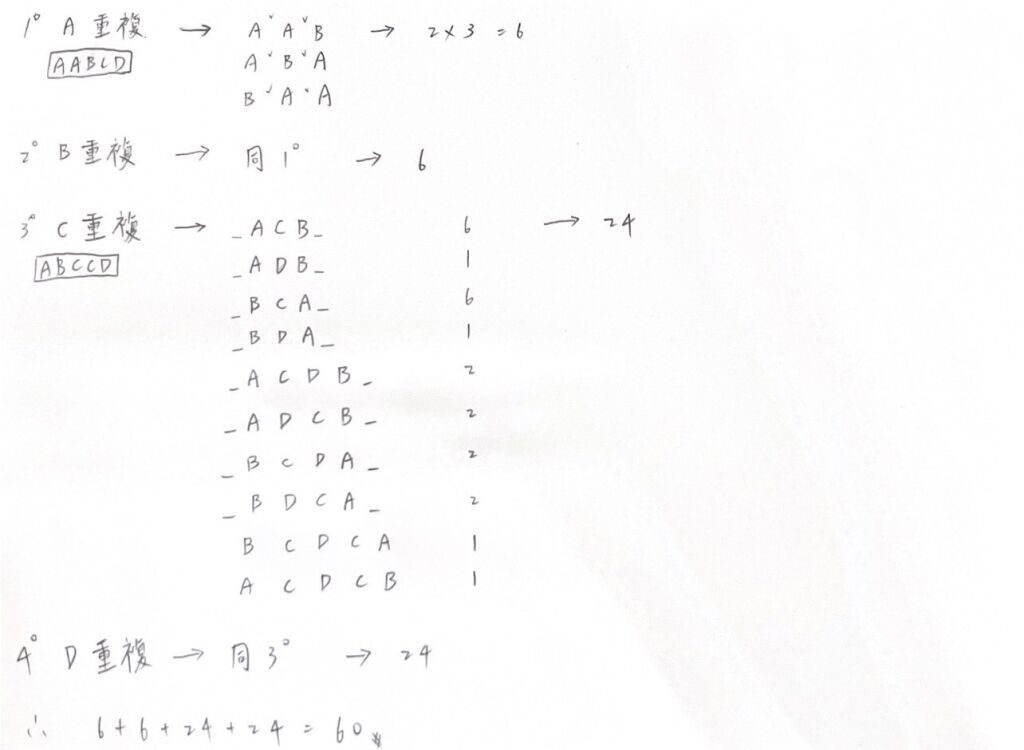 1° A 重複 → AˇAˇB → 2 × 3 = 6
AABCD AˇBˇA
BˇAˇA
2° B 重複 → 同 1° → 6
3° C 重複 → _ A C B _ 6 → 24
ABCCD _ A D B _ 1
_ B C A _ 6
_ B D A _ 1
_ A C D B _ 2
_ A D C B _ 2
_ B C D A _ 2
_ B D C A _ 2
B C D C A 1
A C D C B 1
4° D 重複 → 同 3° → 24
∴ 6 + 6 + 24 + 24 = 60